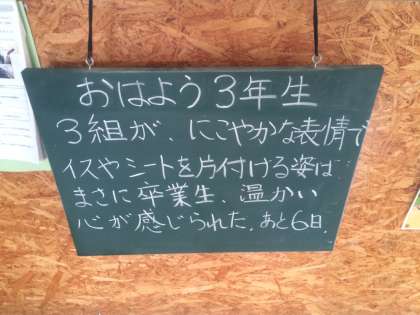 おはよう3年生
3組が、にこやかな表情で
イスやシートを片付ける姿は
まさに卒業生、温かい
心が感じられた。あと6日.